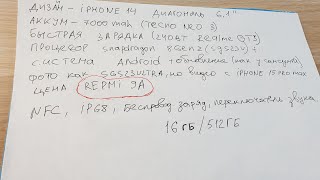 ДИЗАЙН - iPHONE 14 ДИАГОНАЛЬ 6,1"
АККУМ - 7000 mah (TECNO NEO 3)
БЫСТРАЯ ЗАРЯДКА 240ВТ REALME GT3
ПРОЦЕССОР Snapdragon 8Gen2 (S23U) +
СИСТЕМА Android +обновления (как у самсунга)
ФОТО КАК SGS23ULTRA, но ВИДЕО с IPHONE 15 PRO MAX
ЦЕНА REDMI 9A
NFC, IP68, Беспровод заряд, переключатель звука
16ГБ/512ГБ